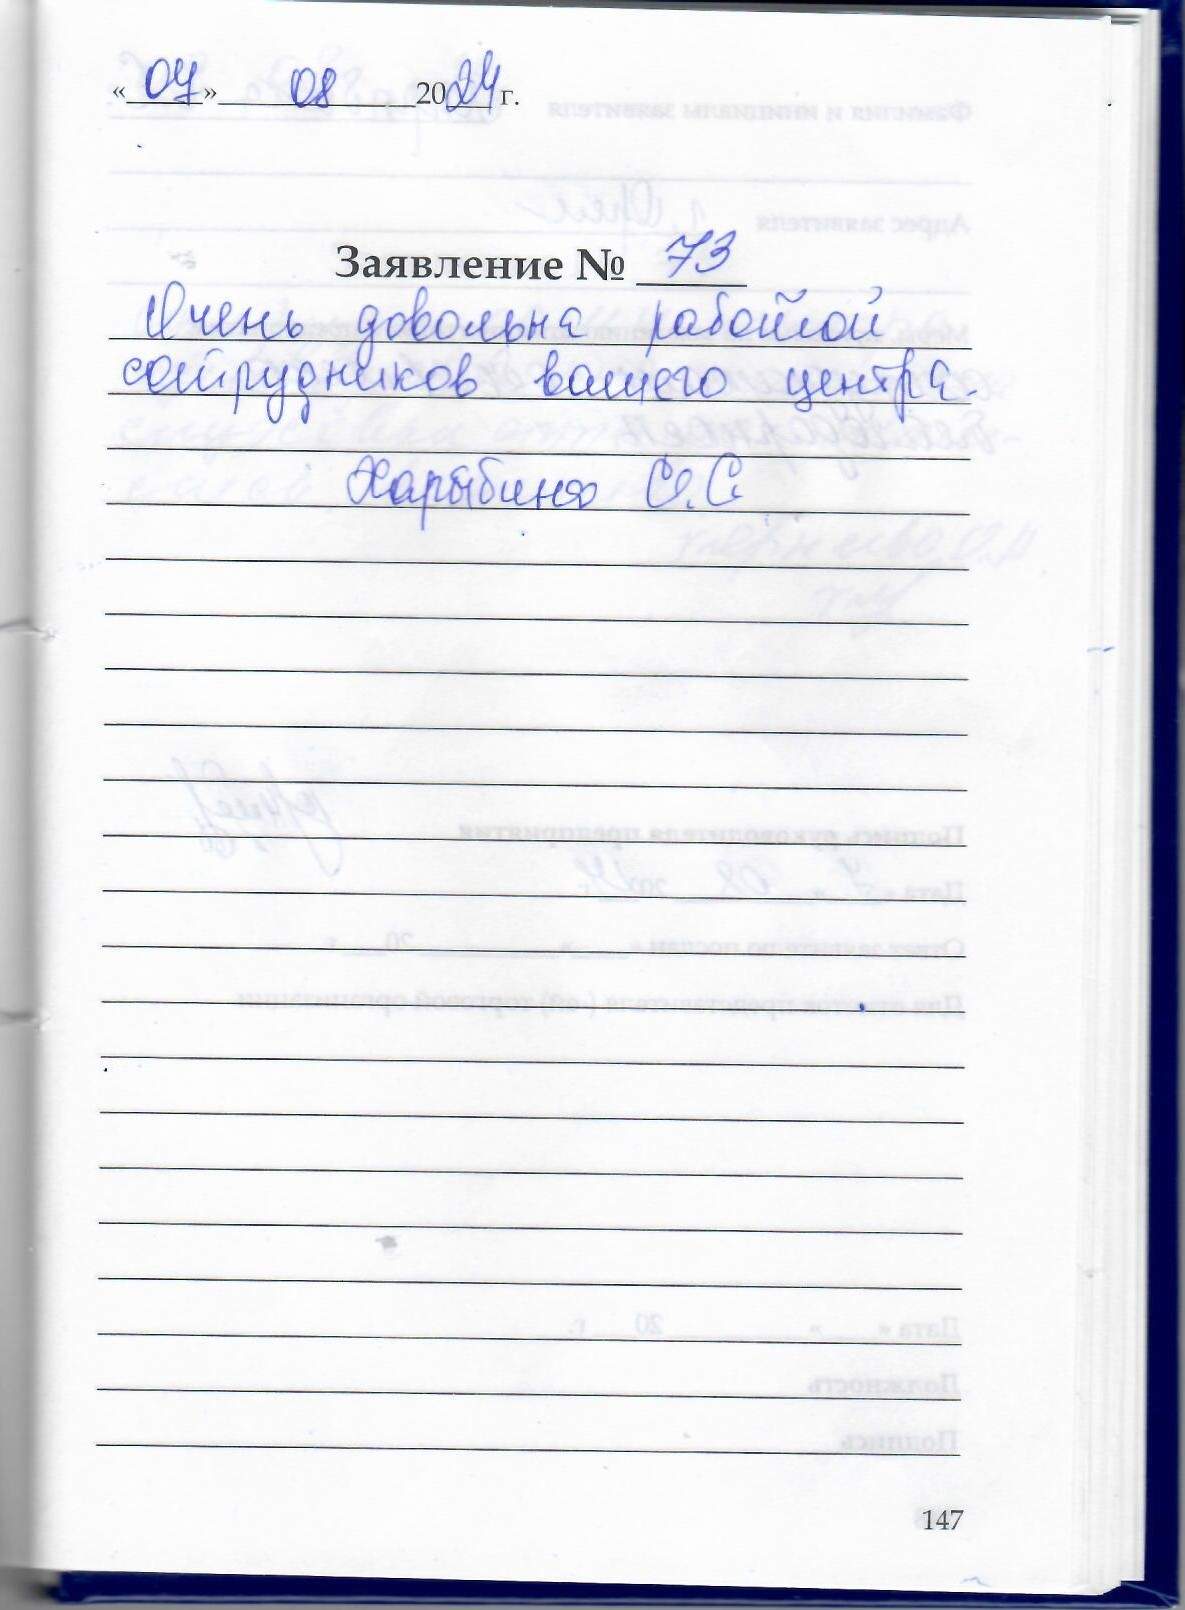 «07» 08 2024 г.
Заявление № 73
Очень довольна работой
сотрудников вашего центра.
Харыбина О.С.
147